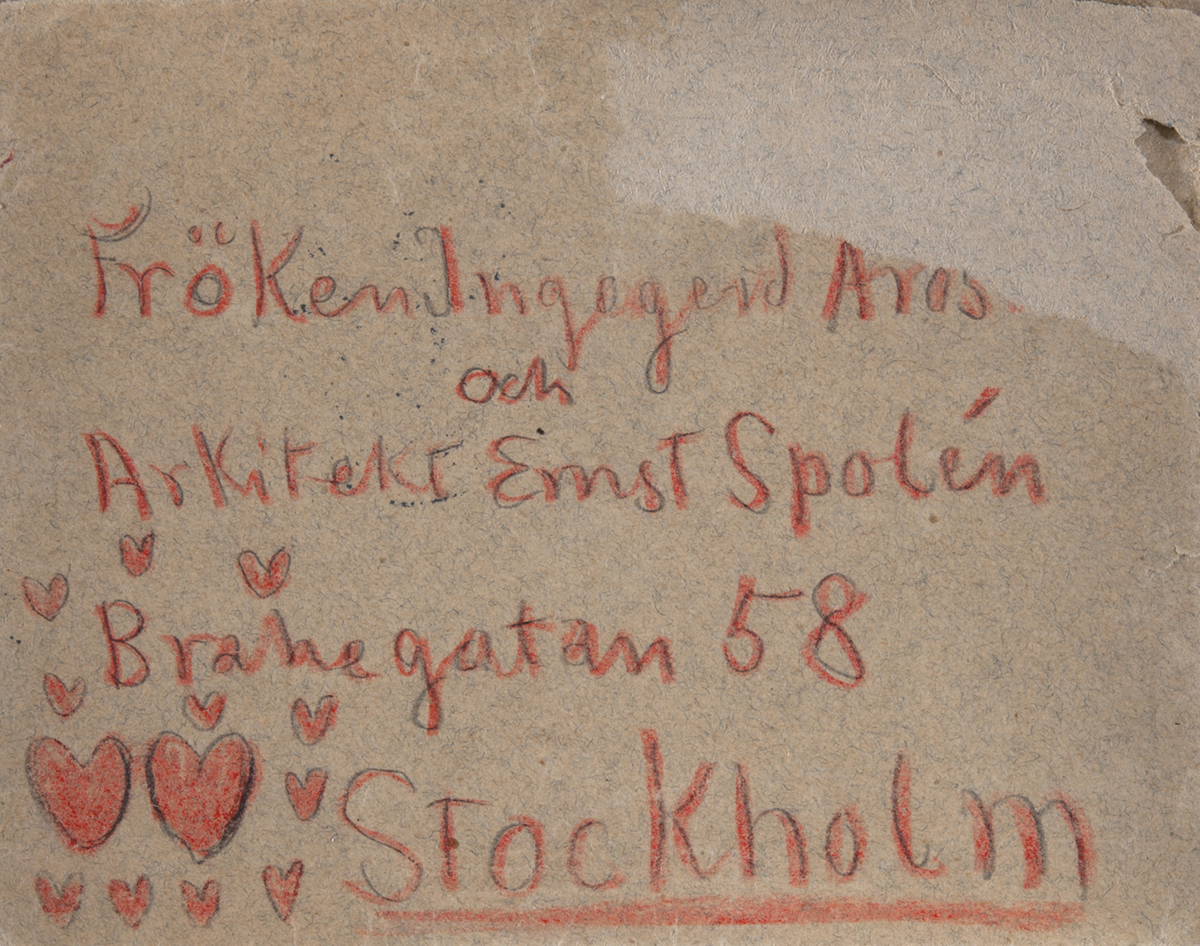 Fröken Ingegerd Aros
och
Arkitekt Ernst Spolén
Brahegatan 58
Stockholm